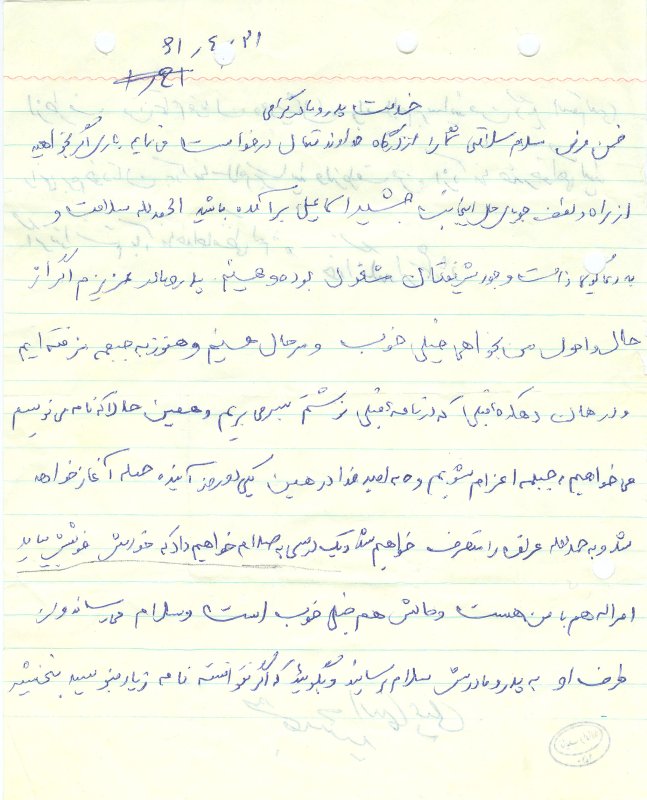 61,4,31
خدمت پدر و مادر گرامی
ضمن عرض سلام سلامتی شما را از درگاه خداوند متعال درخواست می نمایم باری اگر بخواهید
از راه و لطف جویای حال اینجانب جمشید اسماعیلی برآمده باشید الحمدلله سلامت و
به دعاگویی ذات وجود شریفتان مشغول بوده و هستیم. پدر و مادر عزیزم اگر از
حال و احوال من بخواهی خیلی خوب و سرحال هستیم و هنوز به جبهه نرفته ایم
و در همان دهکده قبلی که در نامه قبلی نوشتم بسر می بریم و همین حالا که نامه می نویسم
می خواهیم به جبهه اعزام بشویم و به امید خدا در همین یکی دو روز آینده حمله آغاز خواهد
شد و به حمدالله را متصرف خواهیم شد و یک درسی به صدام خواهیم داد که خودش خوشش بیاید
امراله هم با من هست و حالش هم خیلی خوب است و سلام می رساند و از
طرف او به پدر و مادرش سلام برسانید و بگوئید که اگر نتوانسته نامه زیاد بنویسد ببخشید